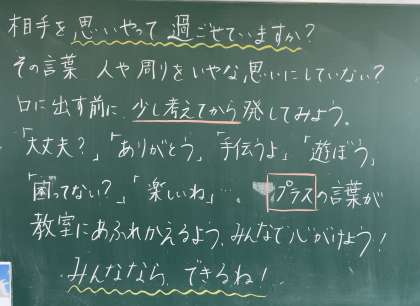 相手を思いやって過ごせていますか?
その言葉 人や周りをいやな思いにしていない?
口に出す前に、少し考えてから発してみよう。
「大丈夫?」「ありがとう」「手伝うよ」「遊ぼう」
「困ってない?」「楽しいね」…。プラスの言葉が
教室にあふれかえるよう、みんなで心がけよう!
みんななら、できるね!